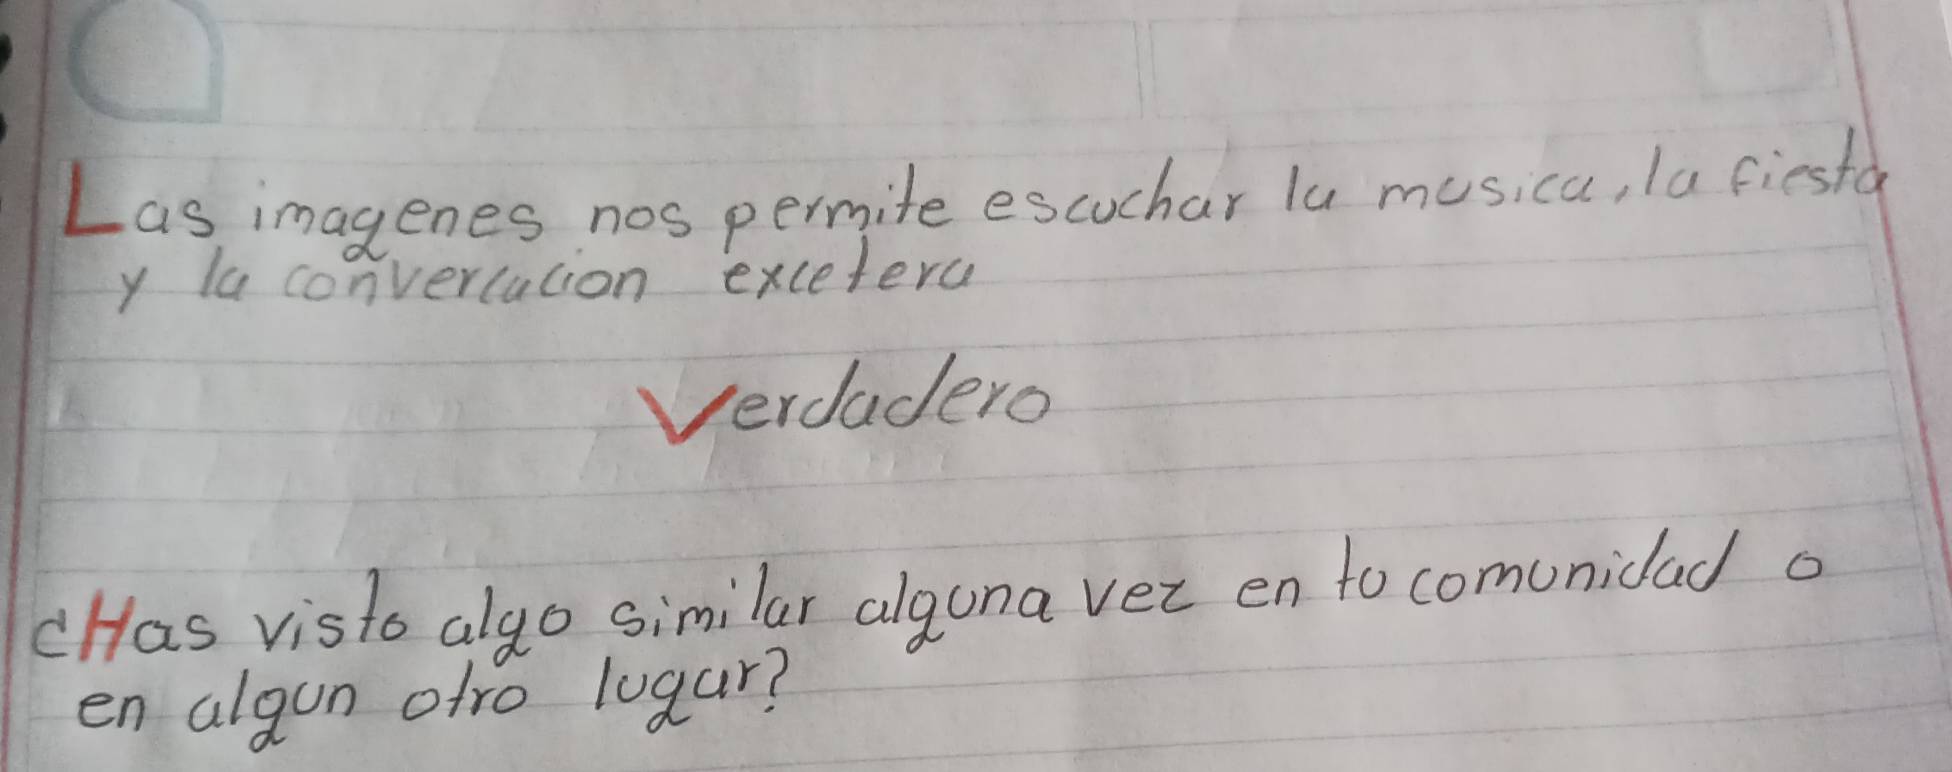 Las imagenes nos permite escuchar la musica, la fiesta
y la convercacion excetera
Verdadero
¿Has visto algo similar alguna vez en tu comunidad o
en algun otro lugar?